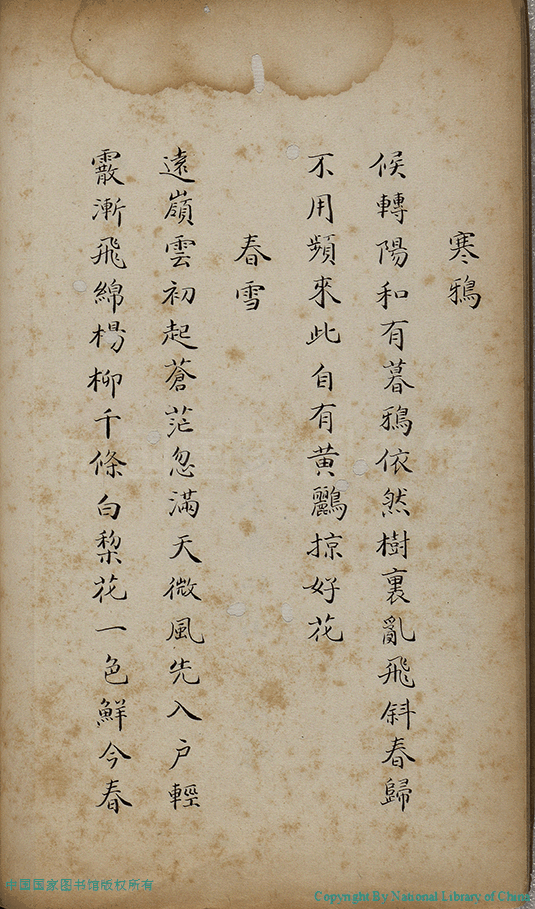 寒鴉
候轉陽和有暮鴉依然樹裏亂飛斜春歸
不用頻來此自有黃鸝掠好花
春雪
遠嶺雲初起蒼茫忽滿天微風先入戶輕
霰漸飛綿楊柳千條白梨花一色鮮今春
中国国家图书馆版权所有
Copyright By National Library of China